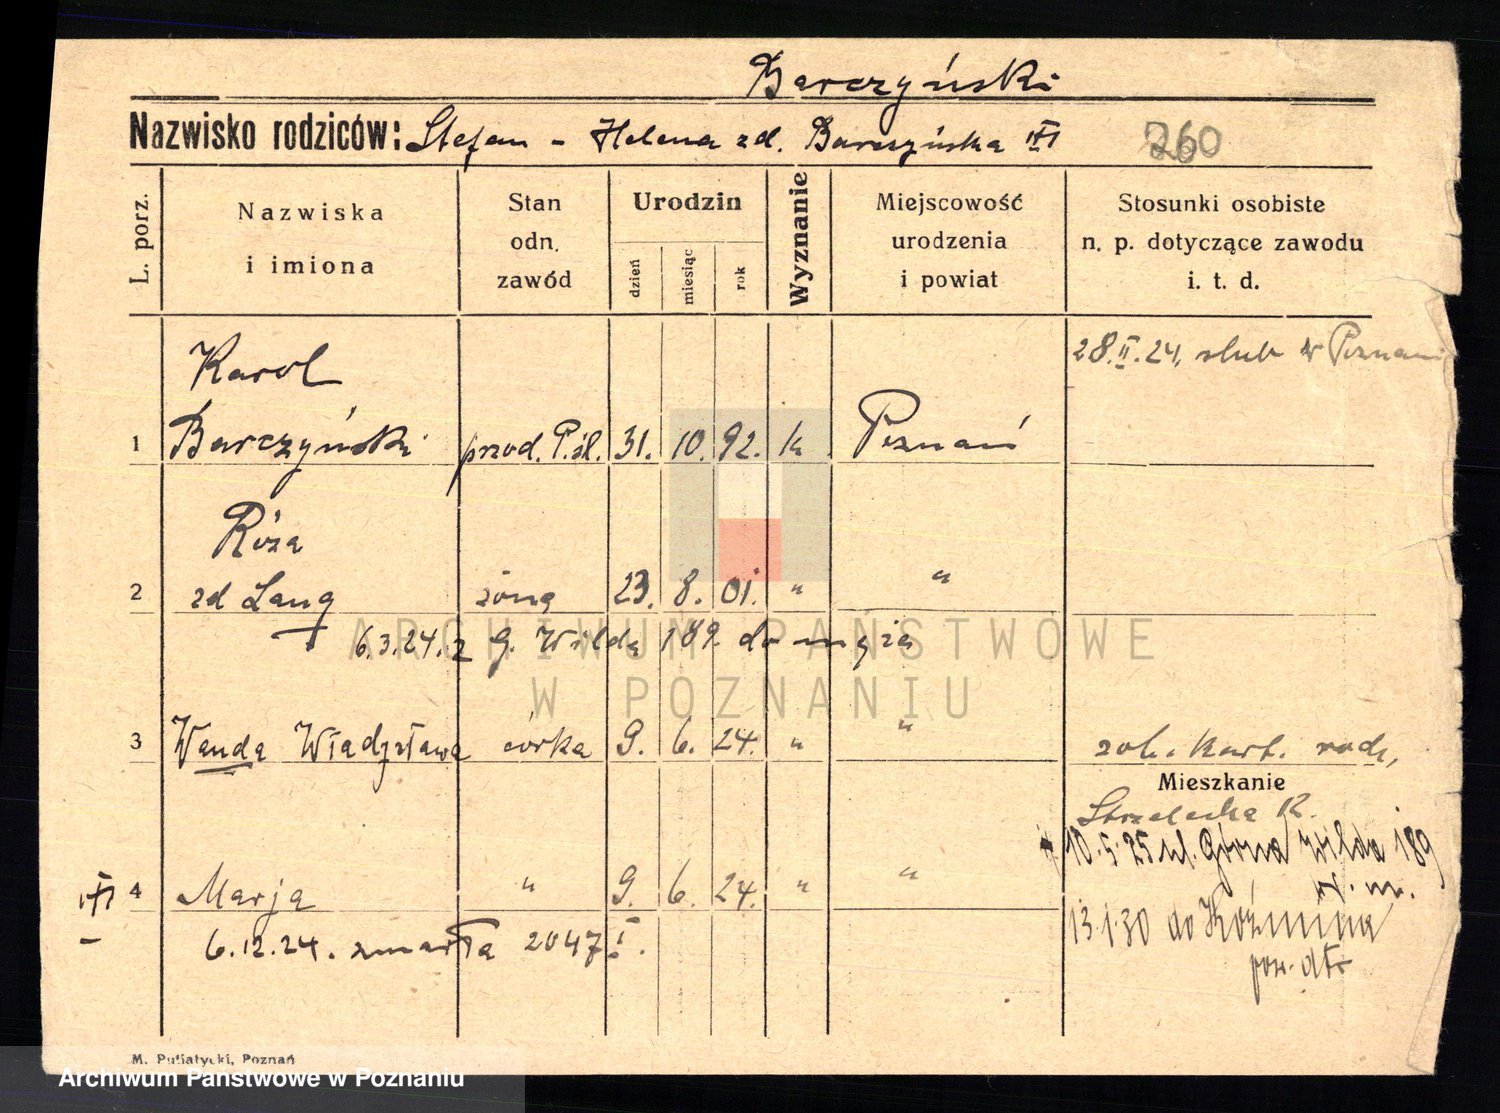 Barczyński
Nazwisko rodziców: Stefan - Helena zd. Barczyńska
260
L. porz.
Nazwiska
i imiona
Stan
odn.
zawód
Urodzin
dzień
miesiąc
rok
Wyznanie
Miejscowość
urodzenia
i powiat
Stosunki osobiste
n. p. dotyczące zawodu
i. t. d.
Karol
28.II.24. slub w Poznaniu
1 Barczyński przod. P.śl. 31. 10. 92. k Poznań
Róża
2 zd Lang żona 23. 8. 01. " "
6.3.24. z G. Wilda 189. do męża
3 Wanda Władysława córka 9. 6. 24. " "
zob. kart. rodz.
Mieszkanie
Strzelecka 12.
10.5.25 ul. Górna Wilda 189
4 Marja " 9. 6. 24. " "
6.12.24. zmarła 2047 I.
13.1.30 do Koźmina
M. Putiatycki, Poznań
ARCHIWUM PAŃSTWOWE
W POZNANIU
Archiwum Państwowe w Poznaniu